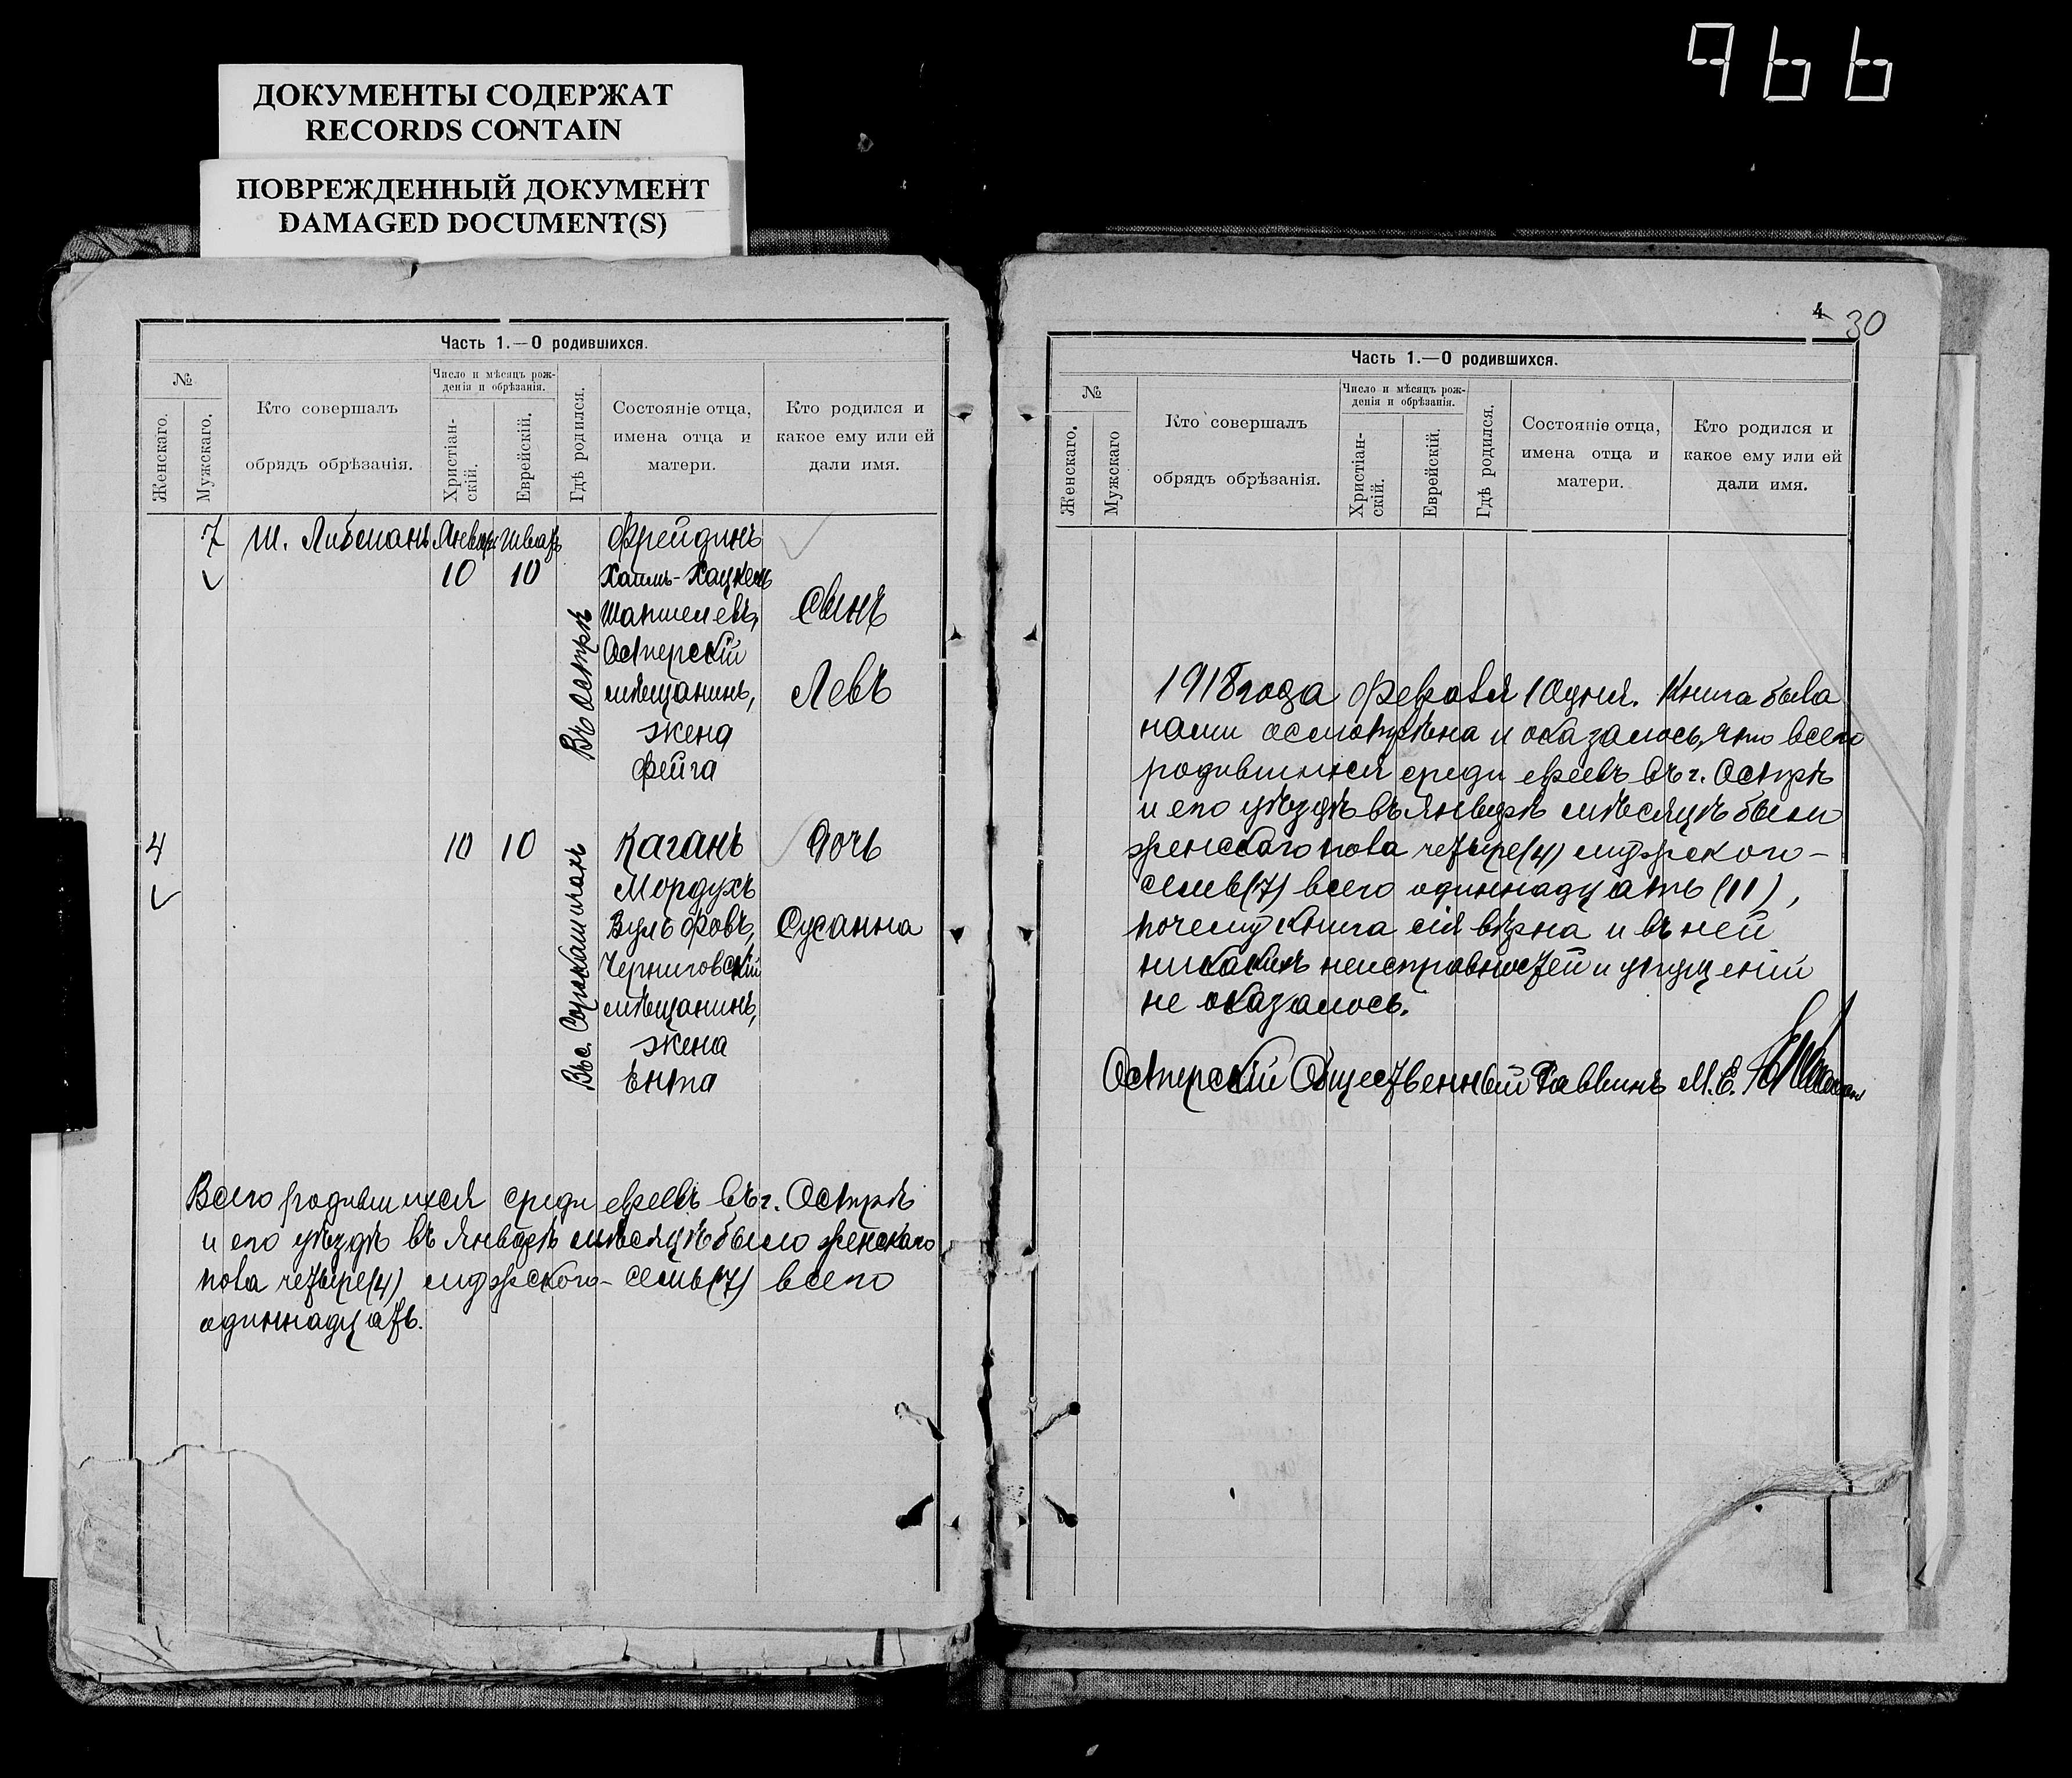 966
ДОКУМЕНТЫ СОДЕРЖАТ
RECORDS CONTAIN
ПОВРЕЖДЕННЫЙ ДОКУМЕНТ
DAMAGED DOCUMENT(S)
Часть 1.—О родившихся.
№
Женскаго.
Мужскаго.
Кто совершалъ
обрядъ обрѣзанія.
Число и мѣсяцъ рож-
денія и обрѣзанія.
Христіан-
скій.
Еврейскій.
Гдѣ родился.
Состояніе отца,
имена отца и
матери.
Кто родился и
какое ему или ей
дали имя.
7
Ш. Либеманъ
Январь
Шватъ
10
10
Въ Острѣ
Фрейдинъ
Хаимъ-Хацкель
Шапшелевъ,
Остерскій
мѣщанинъ,
жена
Фейга
Сынъ
Левъ
4
10
10
Въ с.
Каганъ
Мордухъ
Вульфовъ,
Черниговскій
мѣщанинъ,
жена
Ента
Дочь
Сусанна
Всего родившихся среди евреевъ въ г. Острѣ
и его уѣздѣ въ Январѣ мѣсяцѣ было женскаго
пола четыре (4) мужского - семь (7) всего
одиннадцать.
4
30
Часть 1.—О родившихся.
№
Женскаго.
Мужскаго
Кто совершалъ
обрядъ обрѣзанія.
Число и мѣсяцъ рож-
денія и обрѣзанія.
Христіан-
скій.
Еврейскій.
Гдѣ родился.
Состояніе отца,
имена отца и
матери.
Кто родился и
какое ему или ей
дали имя.
1918 года Февраля 10 дня. Книга была
нами осмотрѣна и оказалось, что всего
родившихся среди евреевъ въ г. Острѣ
и его уѣздѣ въ Январѣ мѣсяцѣ были
женскаго пола четыре (4) мужского -
семь (7) всего одиннадцать (11),
почему книга сія вѣрна и въ ней
никакихъ неисправностей и упущеній
не оказалось.
Остерскій Общественный Раввинъ М. Е.